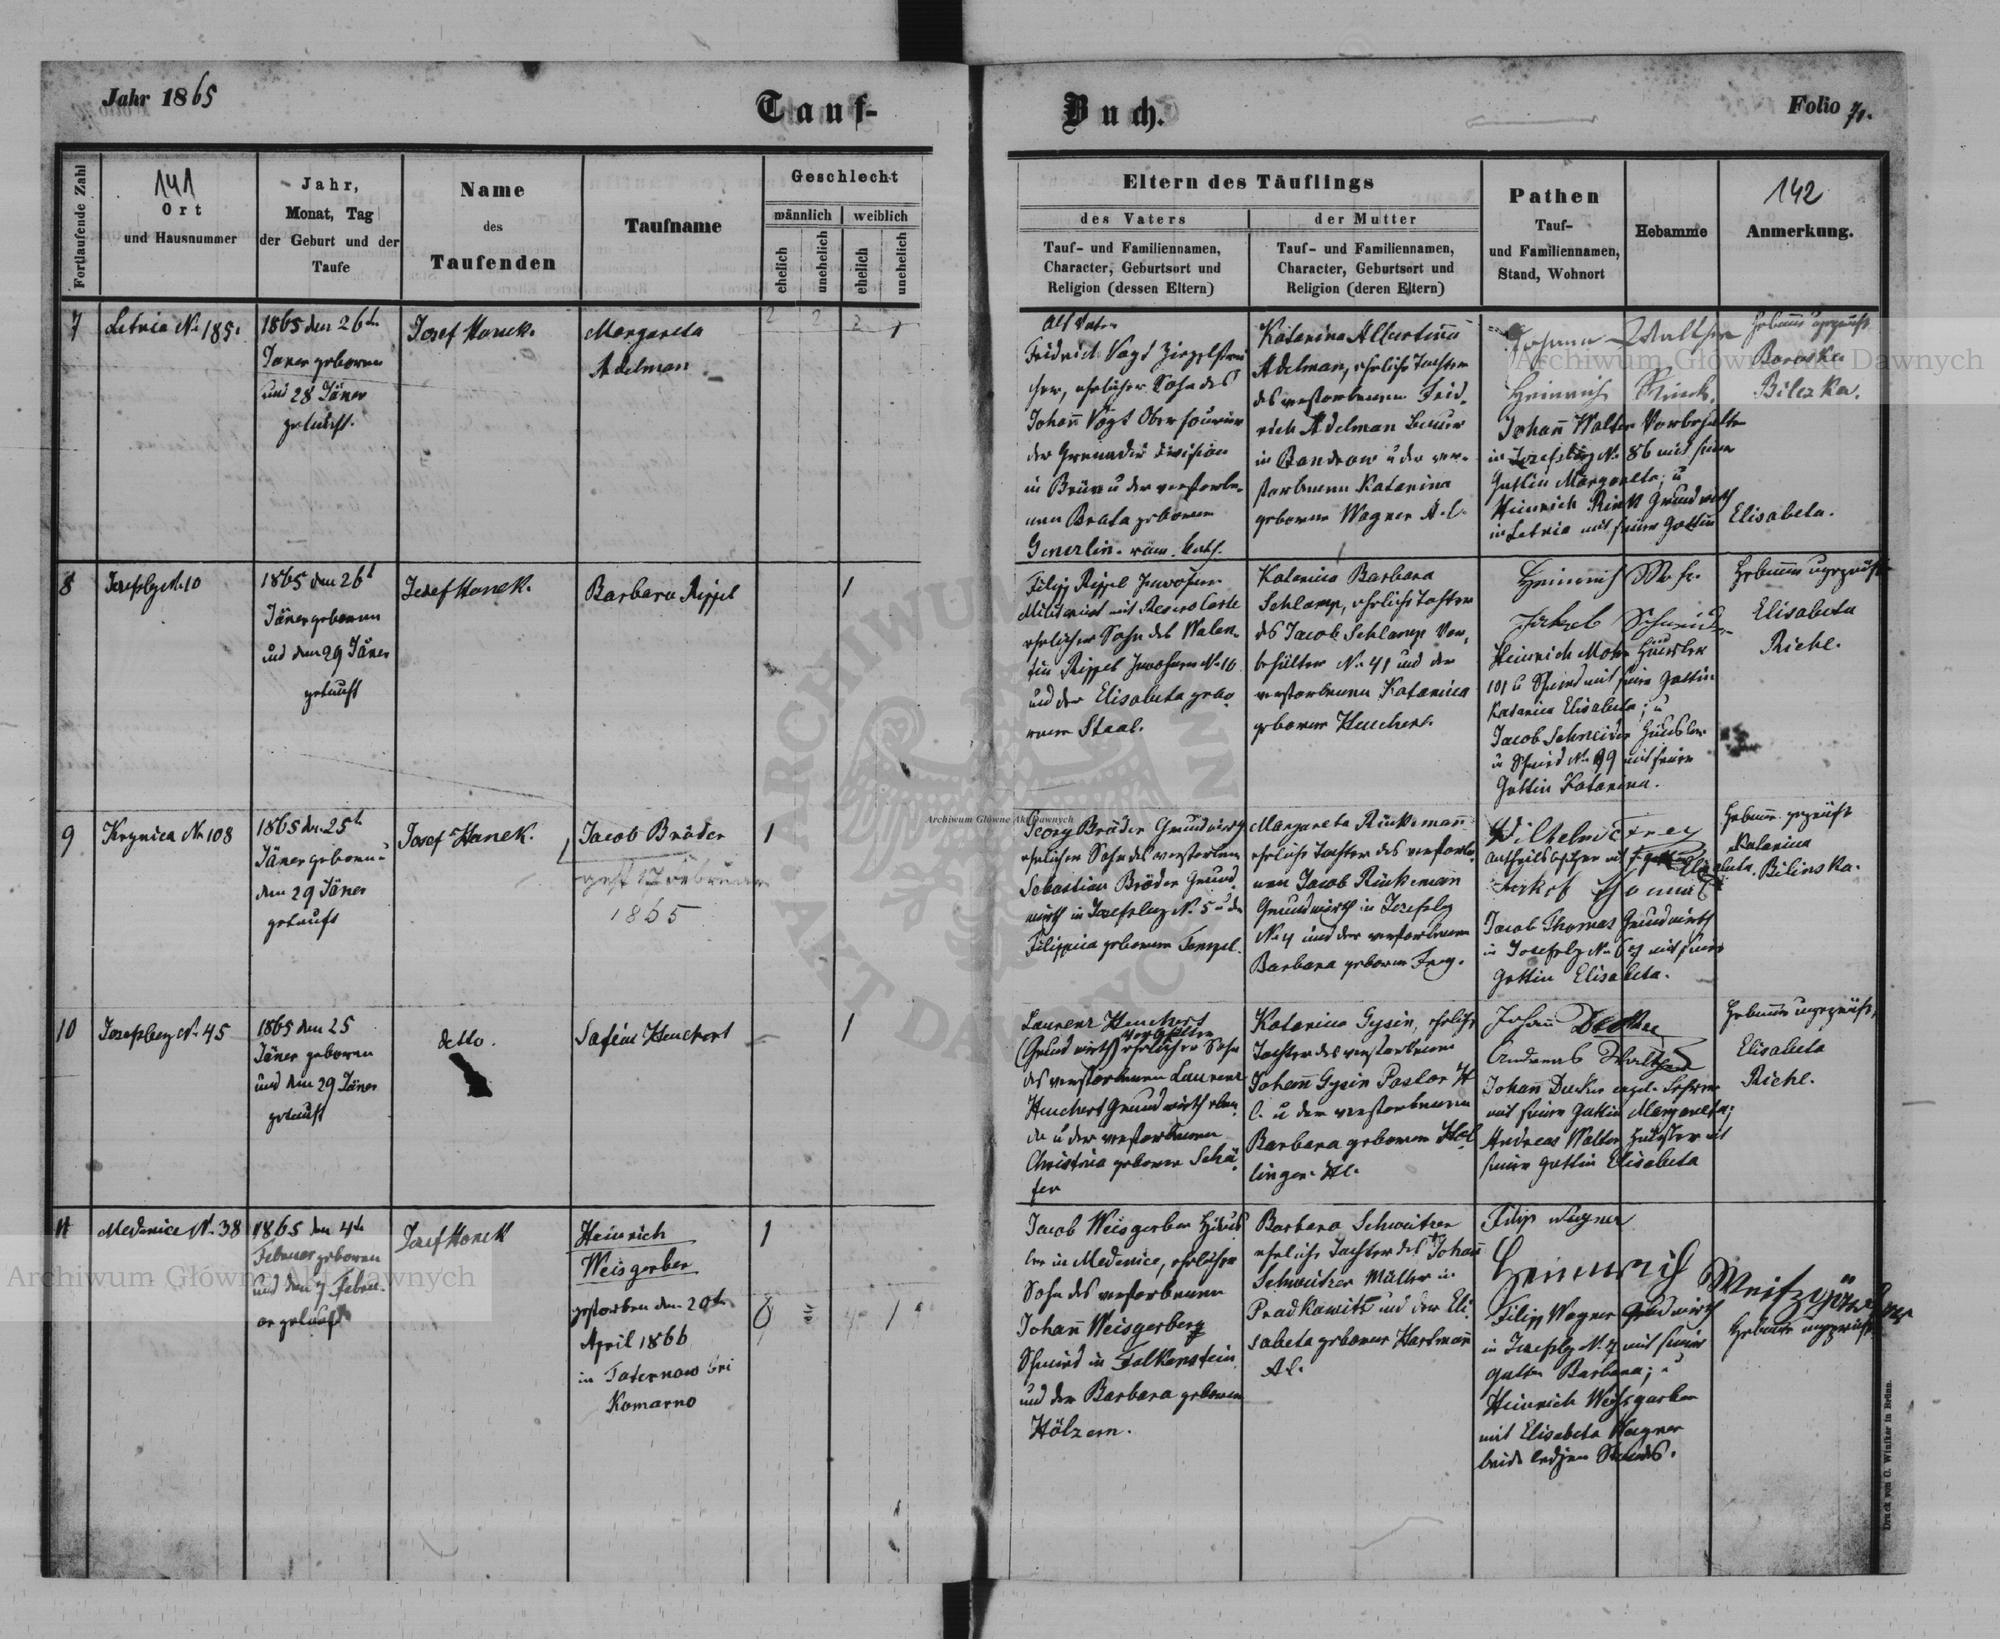 Jahr 1865
Tauf-
Buch.
Folio 71.
Fortlaufende Zahl
141
Ort
und Hausnummer
Jahr,
Monat, Tag
der Geburt und der
Taufe
Name
des
Taufenden
Taufname
Geschlecht
männlich
weiblich
ehelich
unehelich
ehelich
unehelich
Eltern des Täuflings
des Vaters
der Mutter
Tauf- und Familiennamen,
Character, Geburtsort und
Religion (dessen Eltern)
Tauf- und Familiennamen,
Character, Geburtsort und
Religion (deren Eltern)
Pathen
Tauf-
und Familiennamen,
Stand, Wohnort
Hebamme
142
Anmerkung.
7
Letnia No 185.
1865 den 26t
Jäner geboren
und 28 Jäner
getauft.
Josef Hanek.
Margareta
Adelman
1
Als Vater
Fridrich Vogt Ziegelstrei
cher, ehelicher Sohn des
Johann Vogt
der Grenadir Division
in Brünn u der verstorbe-
nen Beata geboren
röm. kath.
Katarina Albertina
Adelman, eheliche Tochter
des verstorbenen Frid-
rich Adelman
in u der ver-
storbenen Katarina
geborene Wagner A.C.
Johann Walther
Heinrich Rinck.
Johann Walter Vorbehalter
in Josefsberg No 86 mit seiner
Gattin Margareta; u
Heinrich Rink Grundwirth
in Letnia mit seiner Gattin
Elisabeta.
Hebamme ungeprüft
Baraska
Bilezka.
8
Josefsbg No 10
1865 den 26t
Jäner geboren
und den 29 Jäner
getauft
Josef Hanek.
Barbara Rippel
1
Filipp Rippel Inwohner
ehelicher Sohn des Walen-
tin Rippel Inwohner No 10
und der Elisabeta gebo
rnen Staal.
Katarina Barbara
Schlamp, eheliche Tochter
des Jacob Schlamp Vor-
behälter No 41 und der
verstorbenen Katarina
geborene Heuchert.
Heinrich Mohr
Jakob Schneider
Heinrich Mohr Häusler
101 u Schmid mit seiner Gattin
Katarina Elisabeta; u
Jacob Schneider Häusler
u Schmid No 99 mit seiner
Gattin Katarina.
Hebamme ungeprüft
Elisabeta
Riehl.
9
Krynica No 108
1865 den 25t
Jäner geboren u
den 29 Jäner
getauft
Josef Hanek.
Jacob Bräder
1865
1
Georg Bräder Grundwirth
ehelicher Sohn des verstorbenen
Sebastian Bräder Grund
wirth in Josefsberg No 5 u der
Filippina geborene
Margareta Rückemann
eheliche Tochter des verstorbe-
nen Jacob Rückemann
Grundwirth in Josefsbg
No 4 und der verstorbenen
Barbara geborene Frey.
Wilhelm Frey
Elisabeta
Jakob Thomas
Jacob Thomas Grundwirth
in Josefsbg No 67 mit seiner
Gattin Elisabeta.
Hebamme geprüft
Katarina
Bilinska.
10
Josefsberg No 45
1865 den 25
Jäner geboren
und den 29 Jäner
getauft
detto.
Sofia Heuchert
1
Laurenz Heuchert
(Grundwirth) ehelicher Sohn
des verstorbenen Laurenz
Heuchert Grundwirth eben
da u der verstorbenen
Christina geborene Schä-
fer
Katarina Gysin, eheliche
Tochter des verstorbenen
Johann Gysin Pastor H
C. u der verstorbenen
Barbara geborene Hol
linger HC.
Johann Decker
Andreas Walther
Johann Decker Lehrer
mit seiner Gattin Margareta;
Andreas Walter Häusler mit
seiner Gattin Elisabeta
Hebamme ungeprüft,
Elisabeta
Riehl.
11
Medenice No 38
1865 den 4te
Februar geboren
und den 7 Febru-
ar getauft
Josef Hanek
Heinrich
Weisgerber
gestorben den 20t
April 1866
in Tatarnow bei
Komarno
1
Jacob Weisgerber Häus
ler in Medenice, ehelicher
Sohn des verstorbenen
Johann Weisgerber
Schmied in Falkenstein
und der Barbara geborene
Hölzern.
Barbara Schweitzer
eheliche Tochter des Johann
Schweitzer Müller in
und der Eli
sabeta geborene Hartmann
AC.
Filip Wagner
Heinrich
Filipp Wagner Grundwirth
in Josefsbg No 7 mit seiner
Gattin Barbara; u
Heinrich Weisgerber
mit Elisabeta Wagner
beide ledigen Standes.
Hebamme ungeprüft
Druck von C. Winiker in Brünn.
Archiwum Główne Akt Dawnych
Archiwum Główne Akt Dawnych
Archiwum Główne Akt Dawnych
ARCHIWUM GŁÓWNE AKT DAWNYCH